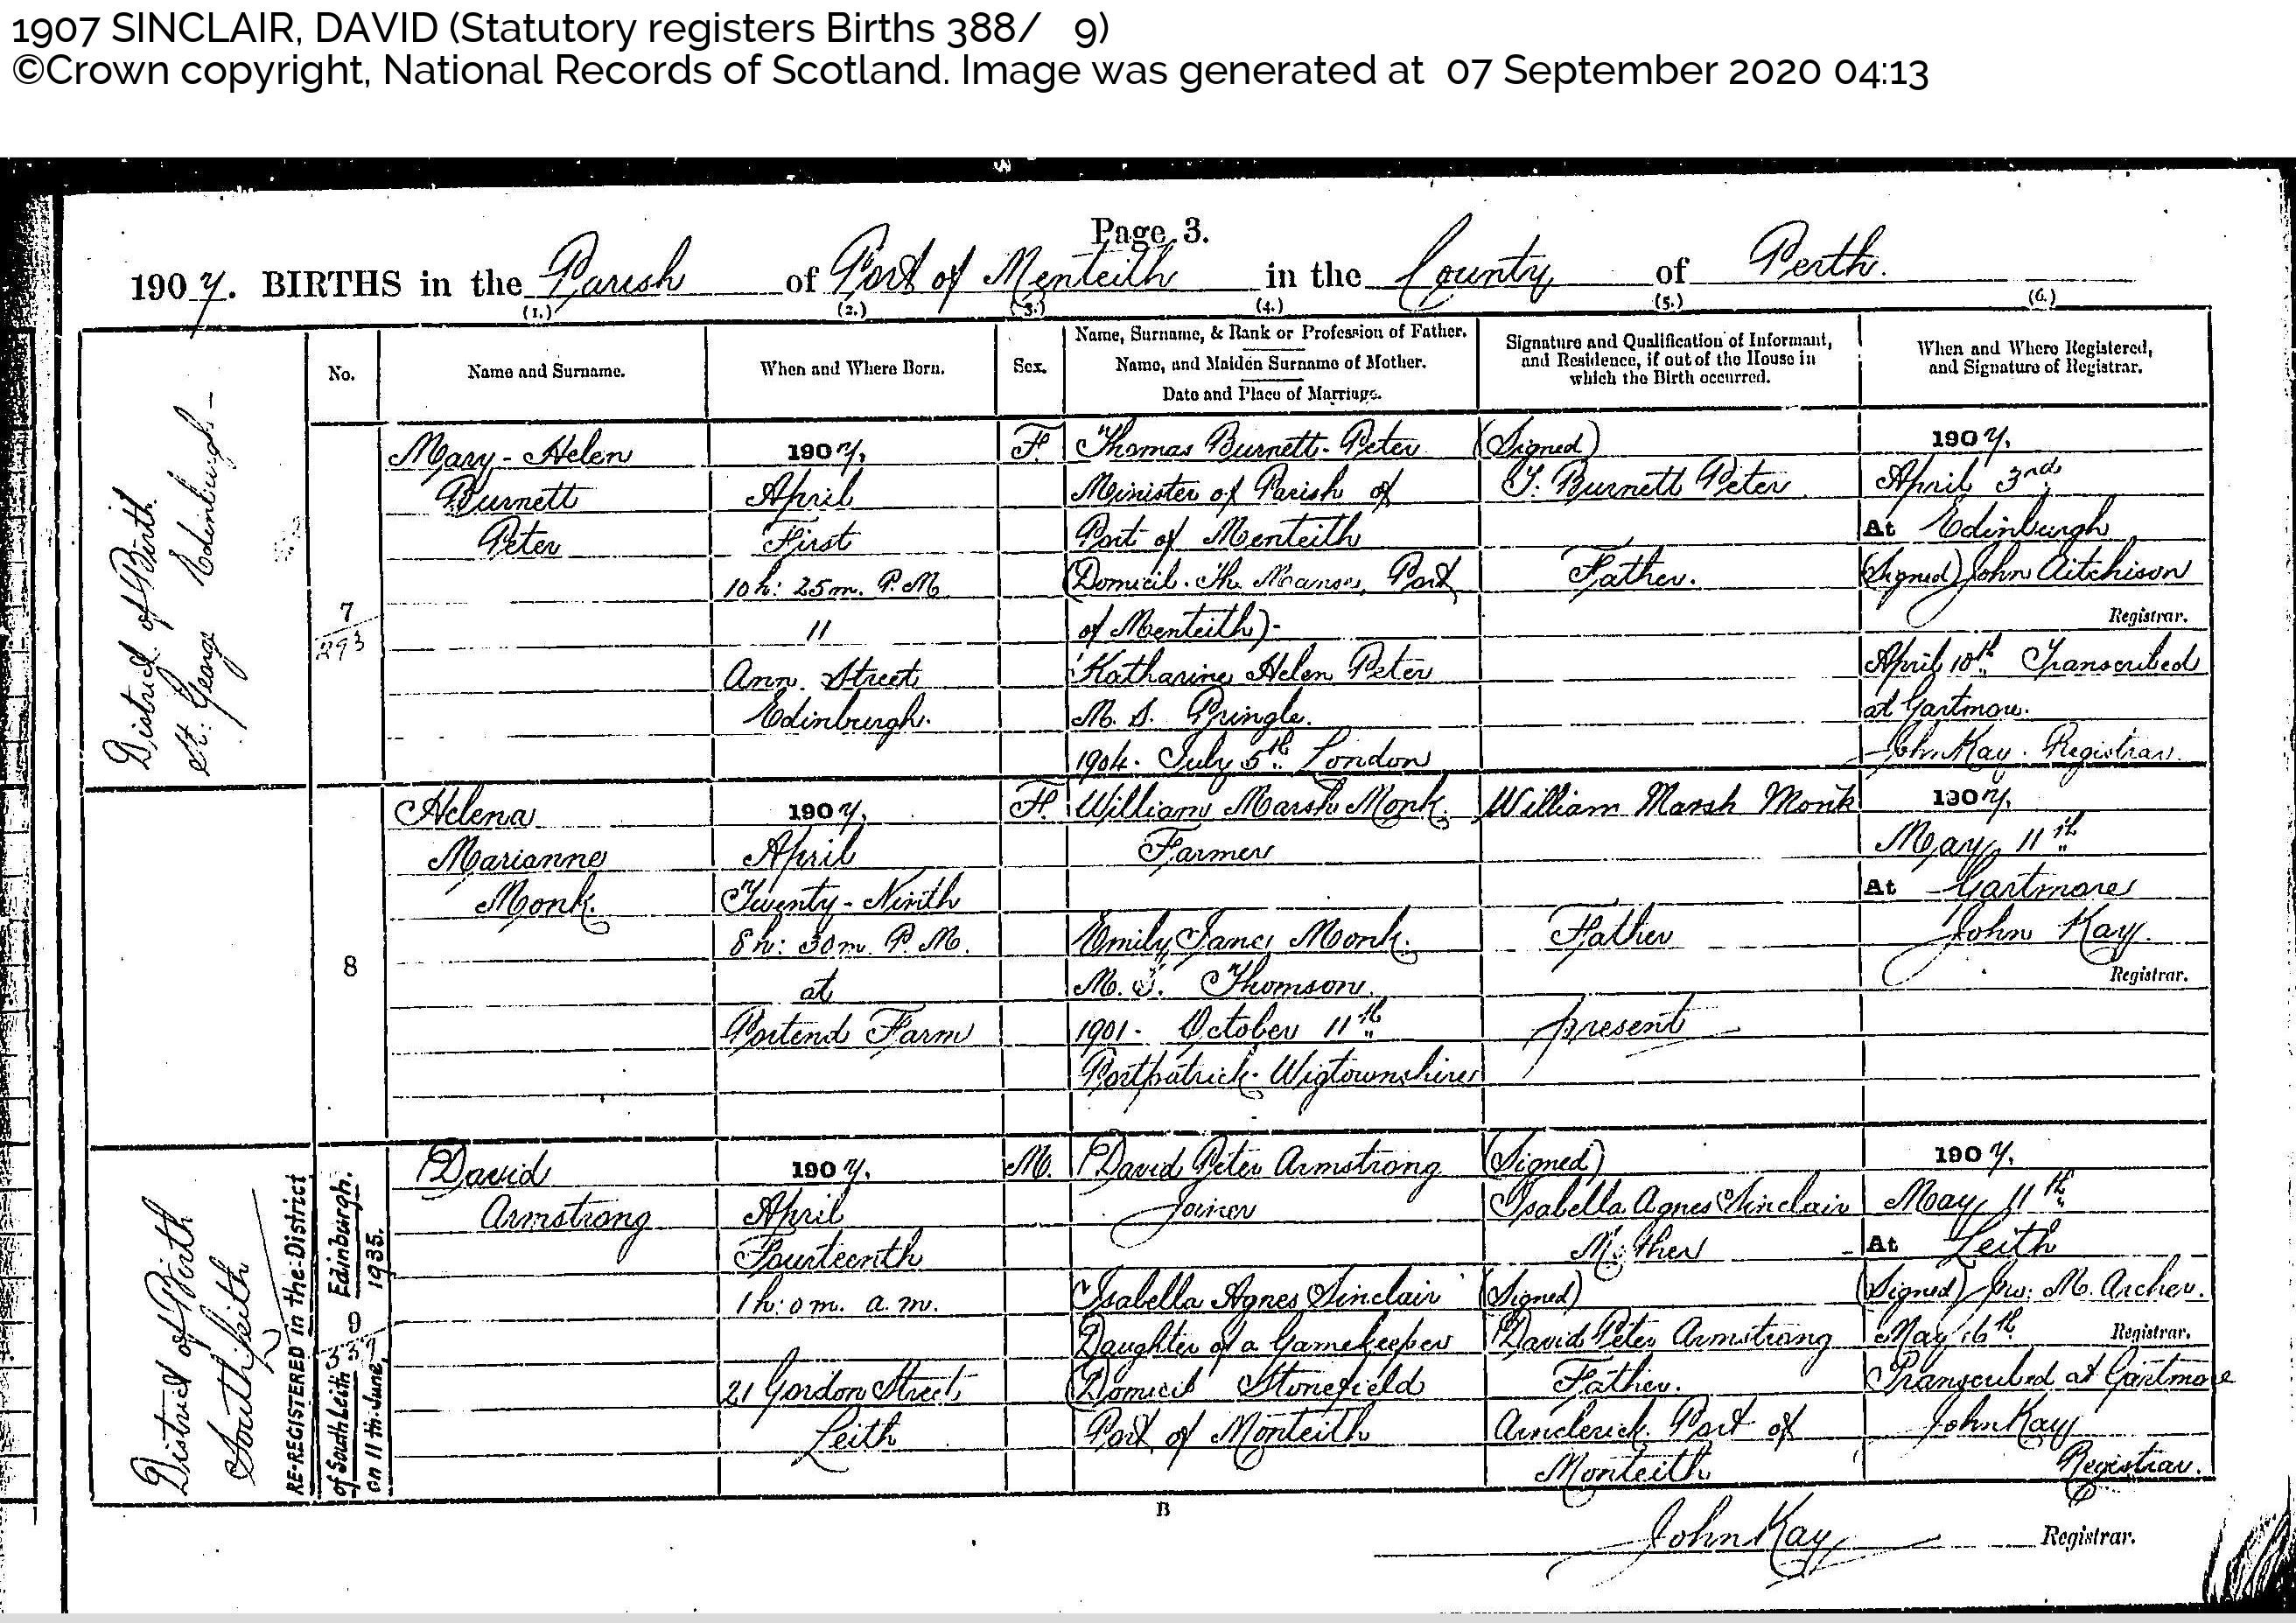 1907 SINCLAIR, DAVID (Statutory registers Births 388/ 9)
©Crown copyright, National Records of Scotland. Image was generated at 07 September 2020 04:13
Page 3.
1907. BIRTHS in the Parish of Port of Menteith in the County of Perth.
(1.) (2.) (3.) (4.) (5.) (6.)
No.
Name and Surname.
When and Where Born.
Sex.
Name, Surname, & Rank or Profession of Father.
Name, and Maiden Surname of Mother.
Date and Place of Marriage.
Signature and Qualification of Informant,
and Residence, if out of the House in
which the Birth occurred.
When and Where Registered,
and Signature of Registrar.
District of Birth
St. George Edinburgh -
7
293
Mary-Helen
Burnett
Peter
1907,
April
First
10h: 25m. P.M
11
Ann Street
Edinburgh.
F.
Thomas Burnett-Peter
Minister of Parish of
Port of Menteith
(Domicil. The Manse, Port
of Menteith)-
Katharine Helen Peter
M. S. Pringle.
1904. July 5th London
(Signed)
T. Burnett Peter
Father.
1907,
April 3rd
At Edinburgh
(Signed) John Aitchison
Registrar.
April 10th Transcribed
at Gartmore.
John Kay. Registrar.
8
Helena
Marianne
Monk.
1907,
April
Twenty-Ninth
8h: 30m. P.M.
at
Portend Farm
F.
William Marsh Monk.
Farmer
Emily Jane Monk.
M. S. Thomson.
1901- October 11th
Portpatrick- Wigtownshire
William Marsh Monk
Father
present
1907,
May 11th
At Gartmore
John Kay.
Registrar.
District of Birth
South Leith
RE-REGISTERED in the District
of South Leith Edinburgh.
on 11th June, 1935.
9
337
David
Armstrong
1907,
April
Fourteenth
1h: 0m. a.m.
21 Gordon Street
Leith
M.
David Peter Armstrong
Joiner
Isabella Agnes Sinclair
Daughter of a Gamekeeper
(Domicil Stonefield
Port of Monteith
(Signed)
Isabella Agnes Sinclair
Mother
(Signed)
David Peter Armstrong
Father.
Port of
Monteith
1907,
May 11th
At Leith
(Signed) M. Archer.
May 16th Registrar.
Transcribed at Gartmore
John Kay
Registrar.
B
John Kay Registrar.